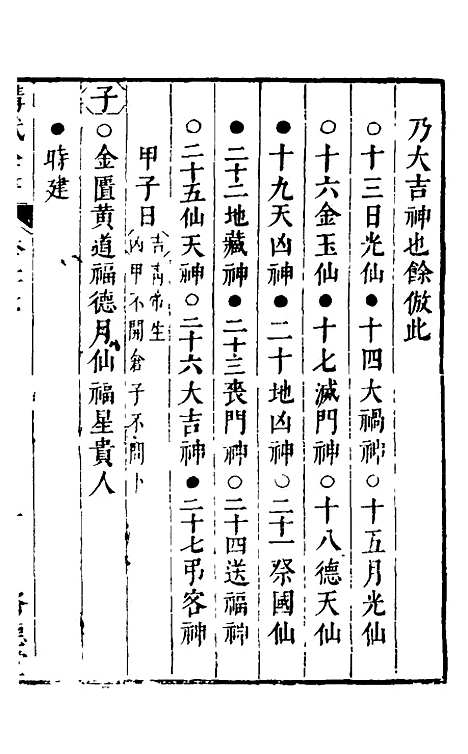 乃大吉神也餘倣此
○十三日光仙●十四大禍神○十五月光仙
○十六金玉仙●十七滅門神○十八德天仙
●十九天凶神●二十地凶神○二十一祭國仙
●二十二地藏神●二十三喪門神○二十四送福神
○二十五仙天神○二十六大吉神●二十七弔客神
甲子日
吉青帝生
凶甲不開倉子不問卜
子
○金匱黃道福德月仙福星貴人
●時建